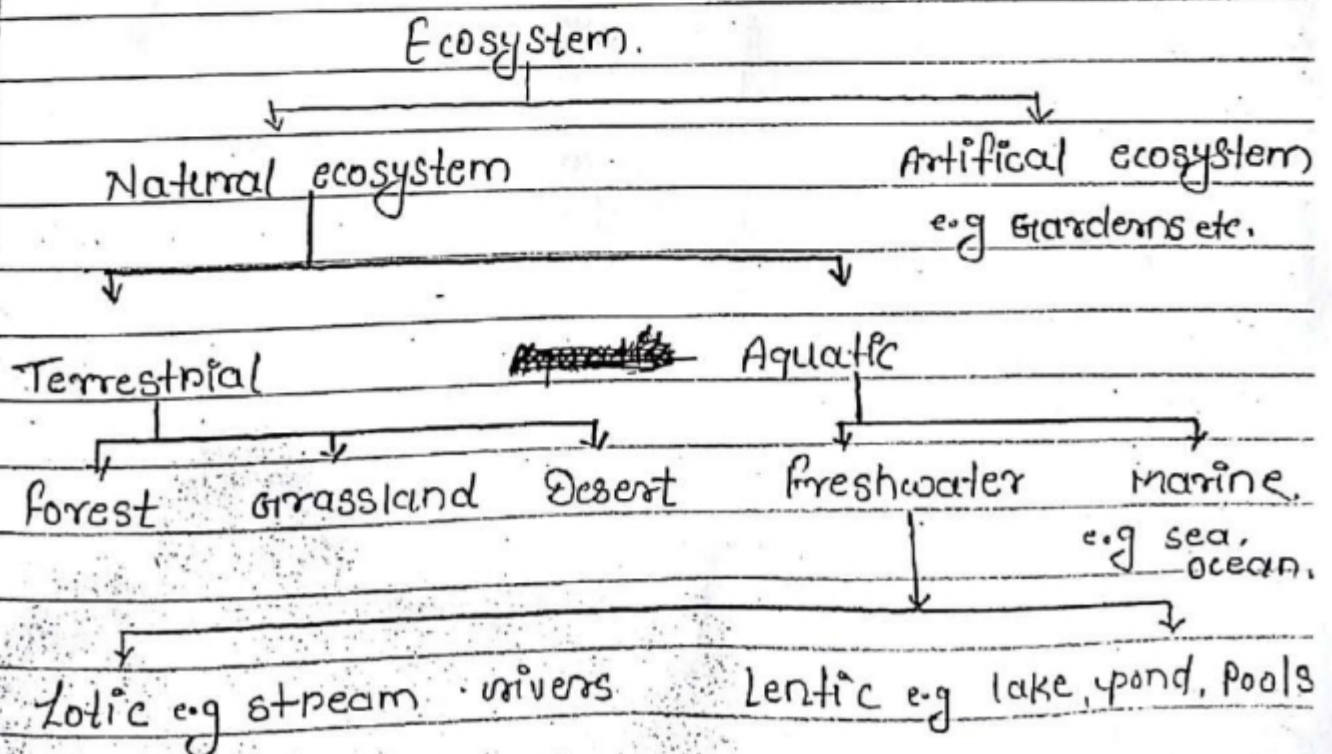 Ecosystem.
Natural ecosystem Artifical ecosystem
e.g Gardens etc.
Terrestrial Aquatic
Forest Grassland Desert Freshwater Marine.
e.g sea.
ocean.
Lotic e.g stream . rivers Lentic e.g lake, pond, Pools